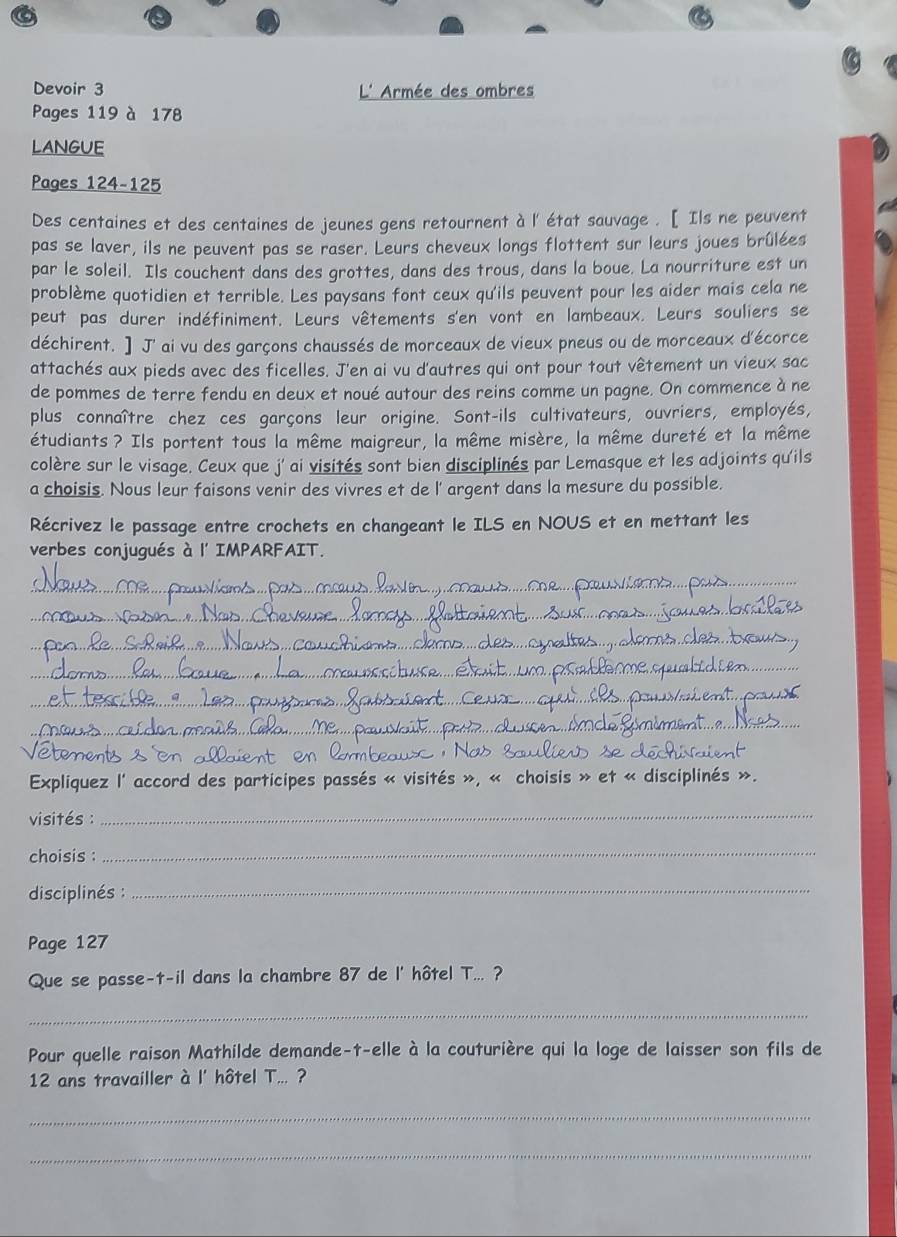 Devoir 3
L' Armée des ombres
Pages 119 à 178
LANGUE
Pages 124-125
Des centaines et des centaines de jeunes gens retournent à l' état sauvage . [ Ils ne peuvent
pas se laver, ils ne peuvent pas se raser. Leurs cheveux longs flottent sur leurs joues brûlées
par le soleil. Ils couchent dans des grottes, dans des trous, dans la boue. La nourriture est un
problème quotidien et terrible. Les paysans font ceux qu'ils peuvent pour les aider mais cela ne
peut pas durer indéfiniment. Leurs vêtements s'en vont en lambeaux. Leurs souliers se
déchirent. ] J' ai vu des garçons chaussés de morceaux de vieux pneus ou de morceaux d'écorce
attachés aux pieds avec des ficelles. J'en ai vu d'autres qui ont pour tout vêtement un vieux sac
de pommes de terre fendu en deux et noué autour des reins comme un pagne. On commence à ne
plus connaître chez ces garçons leur origine. Sont-ils cultivateurs, ouvriers, employés,
étudiants ? Ils portent tous la même maigreur, la même misère, la même dureté et la même
colère sur le visage. Ceux que j' ai visités sont bien disciplinés par Lemasque et les adjoints qu'ils
a choisis. Nous leur faisons venir des vivres et de l' argent dans la mesure du possible.
Récrivez le passage entre crochets en changeant le ILS en NOUS et en mettant les
verbes conjugués à l' IMPARFAIT.
Nous ne pouvions pas nous laver, nous ne pouvions pas
nous raser. Nos cheveux longs flottaient sur nos joues brûlées
par le soleil. Nous couchions dans des grottes, dans des trous,
dans la boue. La nourriture était un problème quotidien
et terrible. Les paysans faisaient ceux qui ils pouvaient pour
nous aider mais cela ne pouvait pas durer indéfiniment. Nos
Vêtements s'en allaient en lambeaux. Nos souliers se déchiraient
Expliquez l' accord des participes passés « visités », « choisis » et « disciplinés ».
visités :
choisis :
disciplinés :
Page 127
Que se passe-t-il dans la chambre 87 de l' hôtel T... ?
Pour quelle raison Mathilde demande-t-elle à la couturière qui la loge de laisser son fils de
12 ans travailler à l' hôtel T... ?